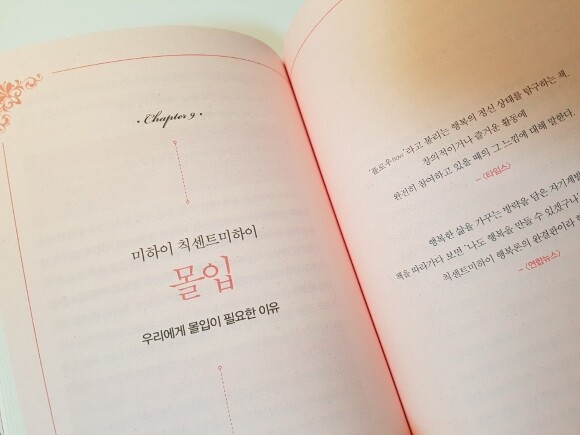 • Chapter 9 •
미하이 칙센트미하이
몰입
우리에게 몰입이 필요한 이유
'플로우flow'라고 불리는 행복의 정신 상태를 탐구하는 책.
창의적이거나 즐거운 활동에
완전히 참여하고 있을 때의 그 느낌에 대해 말한다.
– <타임스>
행복한 삶을 가꾸는 방략을 담은 자기계발
책을 따라가다 보면 '나도 행복을 만들 수 있겠구나
칙센트미하이 행복론의 완결판이라
– <연합뉴스>